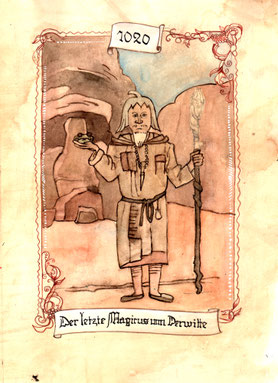 1020
Der letzte Magicus um Derwitte